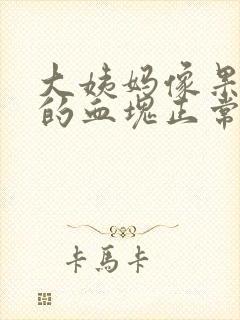 大姨妈像果
的血块正常
卡馬卡